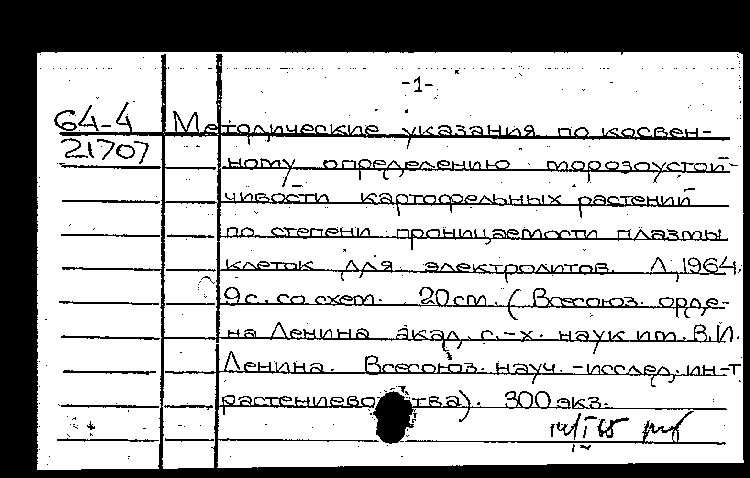 -1-
64-4 Методические указания по косвен-
21707 ному определению морозоустой-
чивости картофельных растений
по степени проницаемости плазмы
клеток для электролитов. Л., 1964.
9 с. со схем. 20 см. (Всесоюз. орде-
на Ленина акад. с.-х. наук им. В.И.
Ленина. Всесоюз. науч.-исслед. ин-т
растениеводства). 300 экз.